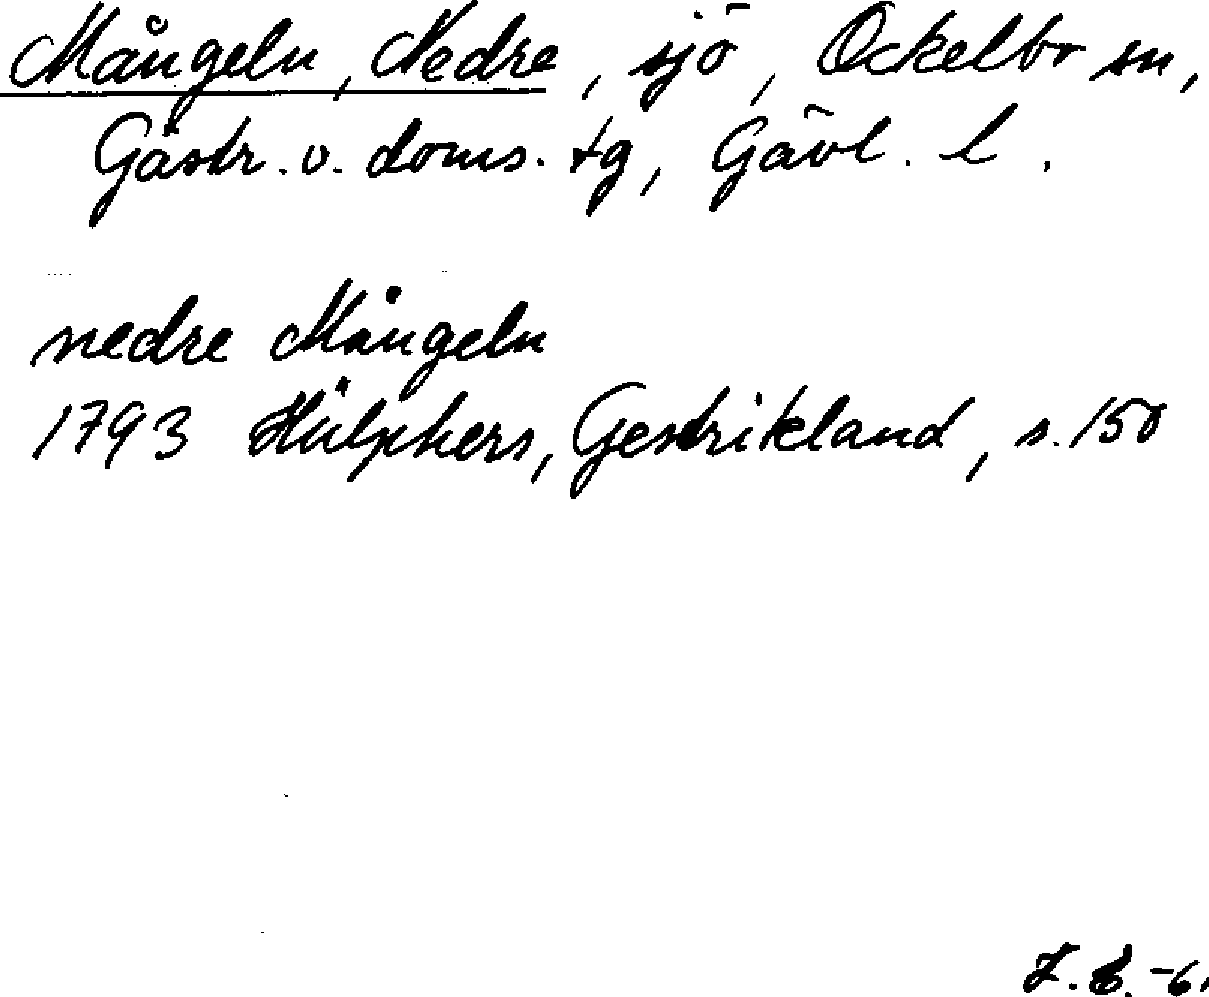 Mångeln, Nedre, sjö, Ockelbo sn,
Gästr. v. doms. tg, Gävl. l.
nedre Mångeln
1793 Hülphers, Gestrikland, s. 150